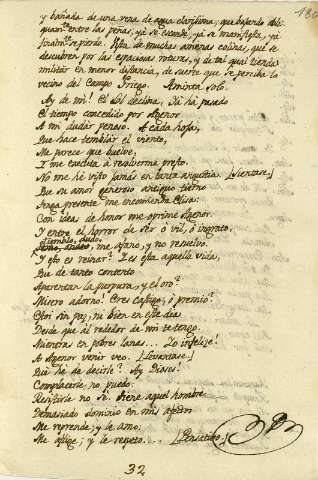 180
y bañada de una vena de agua clarissima, que bajando obli-
quam.te entre las peñas, ya se esconde, ya se manifiesta, ya
finalm.te se pierde. Vista de muchas amenas colinas, que se
descubren por las espaciosas roturas, y de tal qual tienda
militar en menor distancia, de suerte que se perciba lo
vecino del Campo Griego. Aminta solo.
Ay de mi! El Sol declina, Ya há pasado
El tiempo concedido por Agenor
A mi dudar penoso. A cada hoja,
Que hace temblar el viento,
Me parece que buelve,
I me execúta á resolverme presto.
No me hé visto jamás en tanta angustia. [Sientase.]
Que su amor generoso antiguo tierno
Tenga presente me encomienda Elisa:
Con ideas de honor me oprime Agenor.
I entre el horror de ser ó vil, ó ingrato,
Tiemblo, dudo, me afano, y no resuelvo.
I esto es reinar? I es esta aquella vida,
Que de tanto contento
Aparentan la purpura, y el oro?
Misero adorno! Eres castigo, ó premio?
Estoi sin paz, ni bien en este dia
Desde que al rededor de mi te tengo.
Mientras en pobres lanas.... Lo infelize!
A Agenor venir veo. [Levantase.]
Que hé de decirle? Ay Dioses!
Complacerle no puedo:
Resistirle no sé. Tiene aquel hombre
Demasiado dominio en mis afectos
Me reprende; y le amo:
Me aflige; y le respeto.... [Pensativo.]
32